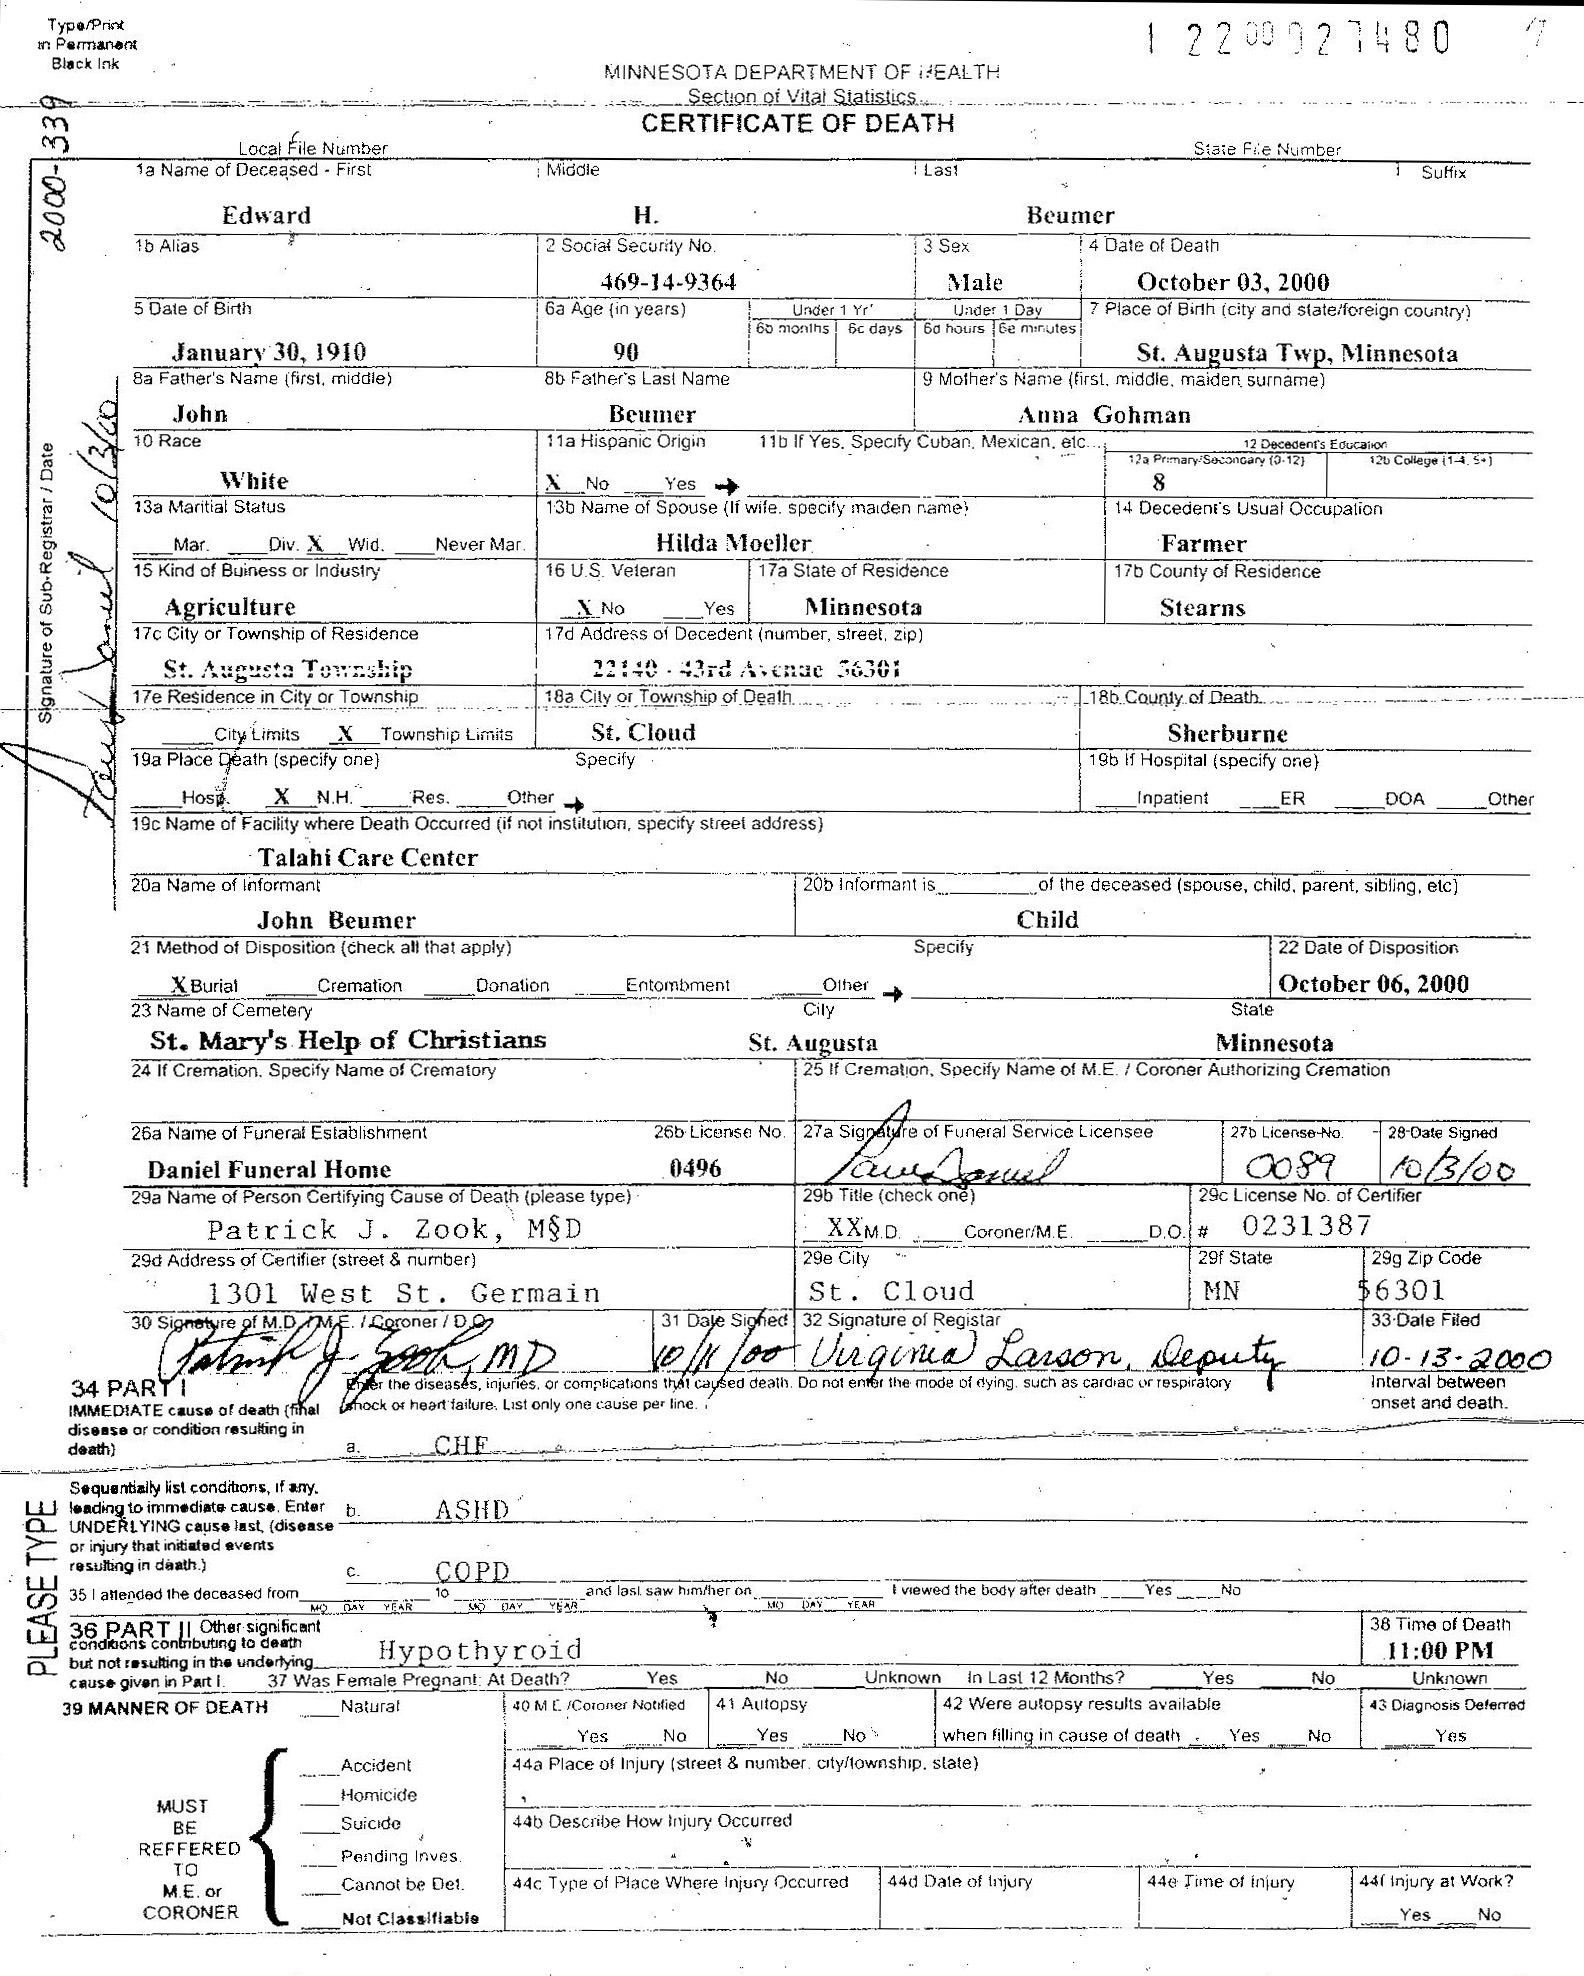 Type/Print
in Permanent
Black Ink
1 2200027480
MINNESOTA DEPARTMENT OF HEALTH
Section of Vital Statistics
CERTIFICATE OF DEATH
2000-339
Local File Number State File Number
1a Name of Deceased - First Middle Last Suffix
Edward H. Beumer
1b Alias 2 Social Security No. 3 Sex 4 Date of Death
469-14-9364 Male October 03, 2000
5 Date of Birth 6a Age (in years) Under 1 Yr Under 1 Day 7 Place of Birth (city and state/foreign country)
6b months 6c days 6d hours 6e minutes
January 30, 1910 90 St. Augusta Twp, Minnesota
8a Father's Name (first, middle) 8b Father's Last Name 9 Mother's Name (first, middle, maiden surname)
John Beumer Anna Gohman
10 Race 11a Hispanic Origin 11b If Yes, Specify Cuban, Mexican, etc... 12 Decedent's Education
12a Primary/Secondary (0-12) 12b College (1-4, 5+)
White X No Yes 8
13a Maritial Status 13b Name of Spouse (If wife, specify maiden name) 14 Decedent's Usual Occupation
Mar. Div. X Wid. Never Mar. Hilda Moeller Farmer
15 Kind of Buiness or Industry 16 U.S. Veteran 17a State of Residence 17b County of Residence
Agriculture X No Yes Minnesota Stearns
17c City or Township of Residence 17d Address of Decedent (number, street, zip)
St. Augusta Township 22140 - 43rd Avenue 56301
17e Residence in City or Township 18a City or Township of Death 18b County of Death
City Limits X Township Limits St. Cloud Sherburne
19a Place Death (specify one) Specify 19b If Hospital (specify one)
Hosp. X N.H. Res. Other Inpatient ER DOA Other
19c Name of Facility where Death Occurred (if not institution, specify street address)
Talahi Care Center
20a Name of Informant 20b Informant is ______ of the deceased (spouse, child, parent, sibling, etc)
John Beumer Child
21 Method of Disposition (check all that apply) Specify 22 Date of Disposition
X Burial Cremation Donation Entombment Other October 06, 2000
23 Name of Cemetery City State
St. Mary's Help of Christians St. Augusta Minnesota
24 If Cremation, Specify Name of Crematory 25 If Cremation, Specify Name of M.E. / Coroner Authorizing Cremation
26a Name of Funeral Establishment 26b License No. 27a Signature of Funeral Service Licensee 27b License No. 28 Date Signed
Daniel Funeral Home 0496 Paul Daniel 0089 10/3/00
29a Name of Person Certifying Cause of Death (please type) 29b Title (check one) 29c License No. of Certifier
Patrick J. Zook, M§D XX M.D. Coroner/M.E. D.O. # 0231387
29d Address of Certifier (street & number) 29e City 29f State 29g Zip Code
1301 West St. Germain St. Cloud MN 56301
30 Signature of M.D. / M.E. / Coroner / D.O. 31 Date Signed 32 Signature of Registar 33 Date Filed
Patrick J. Zook, MD 10/11/00 Virginia Larson, Deputy 10-13-2000
34 PART I Enter the diseases, injuries, or complications that caused death. Do not enter the mode of dying, such as cardiac or respiratory Interval between
IMMEDIATE cause of death (final shock or heart failure. List only one cause per line. onset and death.
disease or condition resulting in
death) a. CHF
Sequentially list conditions, if any,
leading to immediate cause. Enter b. ASHD
UNDERLYING cause last, (disease
or injury that initiated events
resulting in death.) c. COPD
35 I attended the deceased from to and last saw him/her on I viewed the body after death Yes No
MO DAY YEAR MO DAY YEAR MO DAY YEAR
36 PART II Other significant 38 Time of Death
conditions contributing to death Hypothyroid 11:00 PM
but not resulting in the underlying
cause given in Part I. 37 Was Female Pregnant: At Death? Yes No Unknown In Last 12 Months? Yes No Unknown
39 MANNER OF DEATH Natural 40 M.E./Coroner Notified 41 Autopsy 42 Were autopsy results available 43 Diagnosis Deferred
Yes No Yes No when filling in cause of death Yes No Yes
Accident 44a Place of Injury (street & number, city/township, state)
Homicide
MUST
BE Suicide 44b Describe How Injury Occurred
REFFERED Pending Inves.
TO
M.E. or Cannot be Det. 44c Type of Place Where Injury Occurred 44d Date of Injury 44e Time of Injury 44f Injury at Work?
CORONER Not Classifiable Yes No
Signature of Sub-Registrar / Date
Paul Daniel 10/3/00
PLEASE TYPE